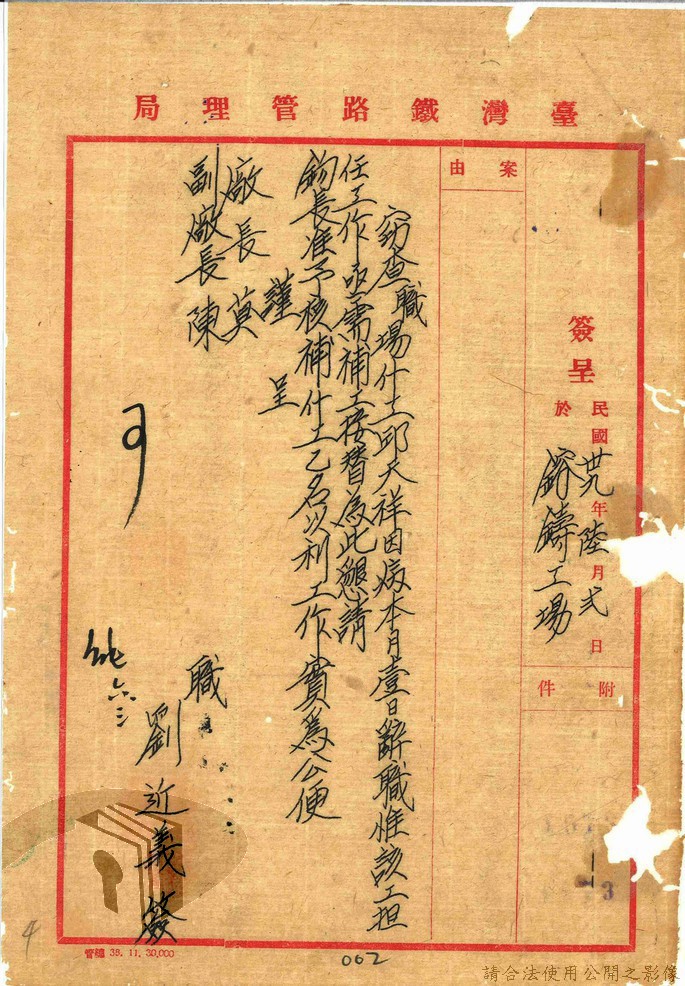 臺灣鐵路管理局
簽呈
民國卅九年陸月弍日
於鎔鑄工場
附件
案由
竊查職場什工邱天祥因病本月壹日辭職惟該工担
任工作亟需補工接替為此懇請
鈞長准予核補什工乙名以利工作實為公便
謹
呈
廠長莫
副廠長陳
職
劉近義簽
可
六.三
3
管總 38. 11. 30,000
002
4
請合法使用公開之影像